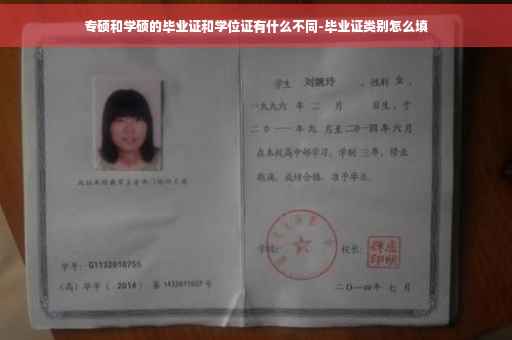 专硕和学硕的毕业证和学位证有什么不同-毕业证类别怎么填
学生 刘婉玲 ,性别 女 ,
一九九六 年 二 月 日生,于
二〇一一 年 九 月至 二〇一四 年 六 月
在本校高中部学习,学制 三 年,修业
期满,成绩合格,准予毕业。
学号: G1132010755
(高)毕字( 2014 )第 1432011007 号
学校:
校长:
二〇一四年 七 月